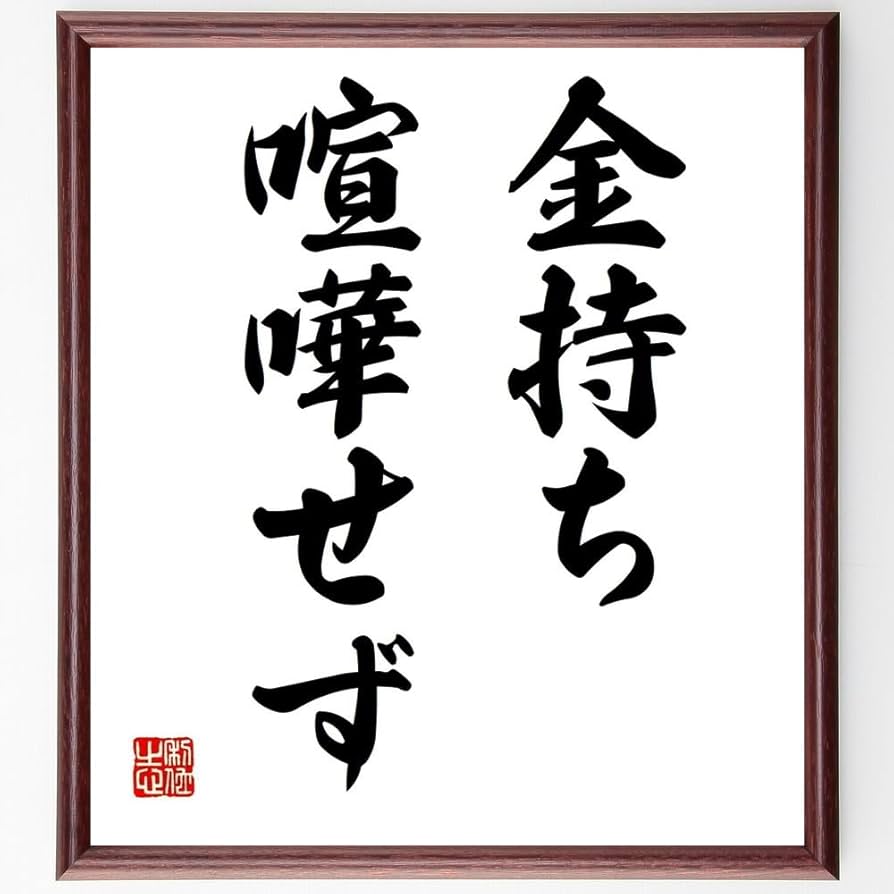 金持ち
喧嘩せず